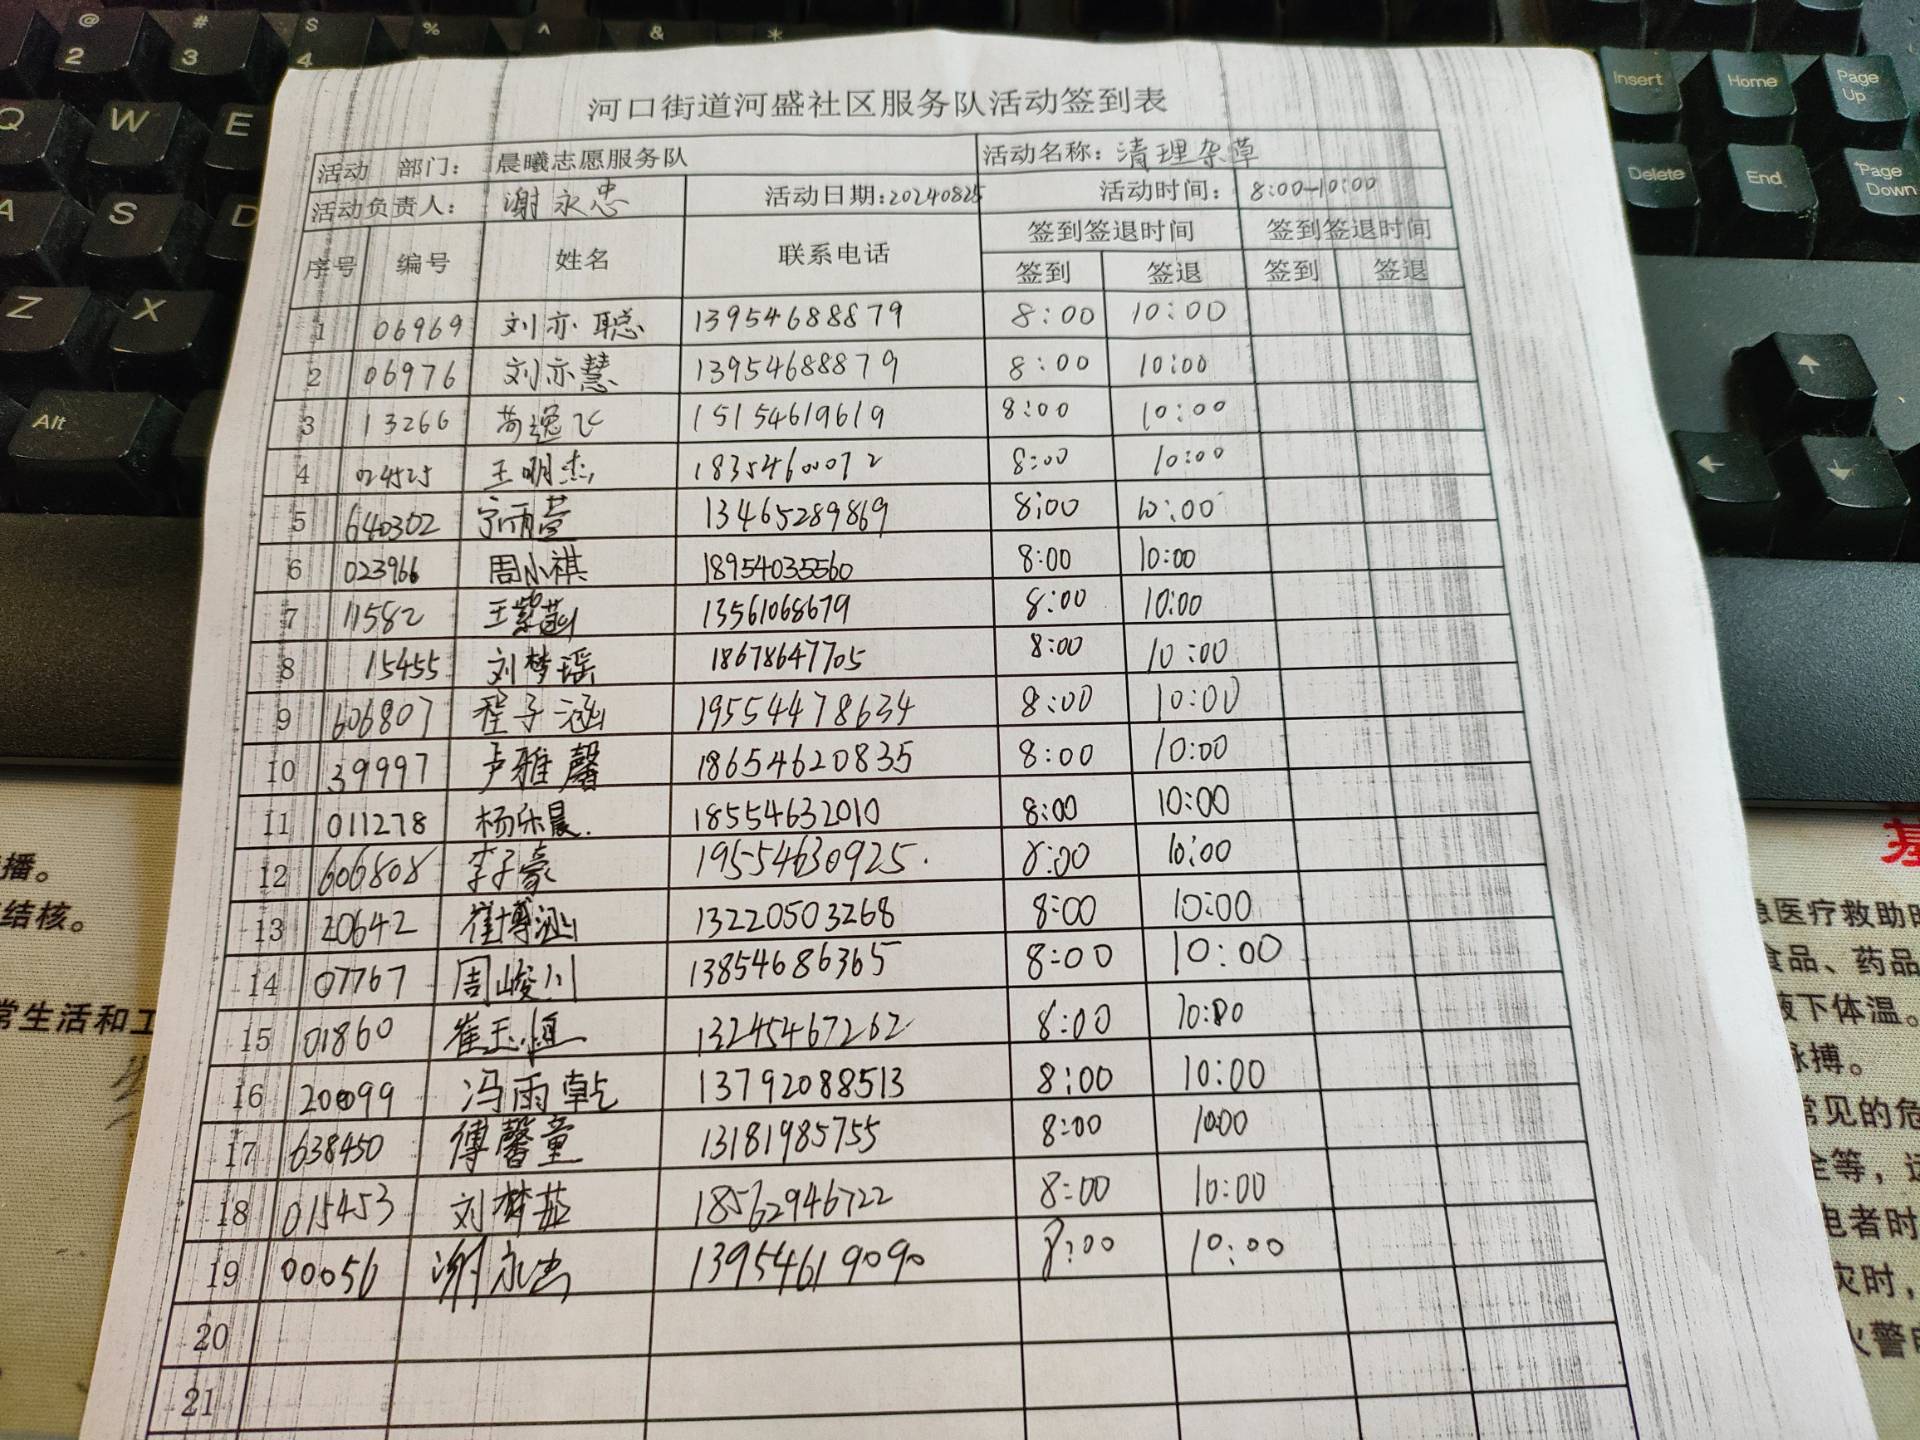 河口街道河盛社区服务队活动签到表
活动 部门: 晨曦志愿服务队 活动名称: 清理杂草
活动负责人: 谢永忠 活动日期:20240825 活动时间: 8:00-10:00
序号 编号 姓名 联系电话 签到签退时间 签到签退时间
签到 签退 签到 签退
1 06969 刘亦聪 13954688879 8:00 10:00
2 06976 刘亦慧 13954688879 8:00 10:00
3 13266 苟逸飞 15154619619 8:00 10:00
4 024525 王明杰 18354600072 8:00 10:00
5 640302 宁雨萱 13465289869 8:00 10:00
6 023966 周小祺 18954035560 8:00 10:00
7 11582 王紫菡 13561068679 8:00 10:00
8 15455 刘梦瑶 18678647705 8:00 10:00
9 606807 程子涵 19554478634 8:00 10:00
10 39997 卢雅馨 18654620835 8:00 10:00
11 011278 杨乐晨. 18554632010 8:00 10:00
12 606808 李子豪 19554630925. 8:00 10:00
13 20642 崔博涵 13220503268 8:00 10:00
14 07767 周峻川 13854686365 8:00 10:00
15 01860 崔玉恒 13245467262 8:00 10:00
16 20099 冯雨乾 13792088513 8:00 10:00
17 638450 傅馨童 13181985755 8:00 10:00
18 015453 刘梦茹 18562946722 8:00 10:00
19 00056 谢永忠 13954619090 8:00 10:00
20
21
@ # $ % ^ & *
2 3 4
Q W E
A S D
Z X
Alt
Insert Home Page Up
Delete End Page Down
播。
结核。
常生活和工
急医疗救助时
食品、药品
腋下体温。
脉搏。
常见的危
全等，
电者时
灾时，
火警时